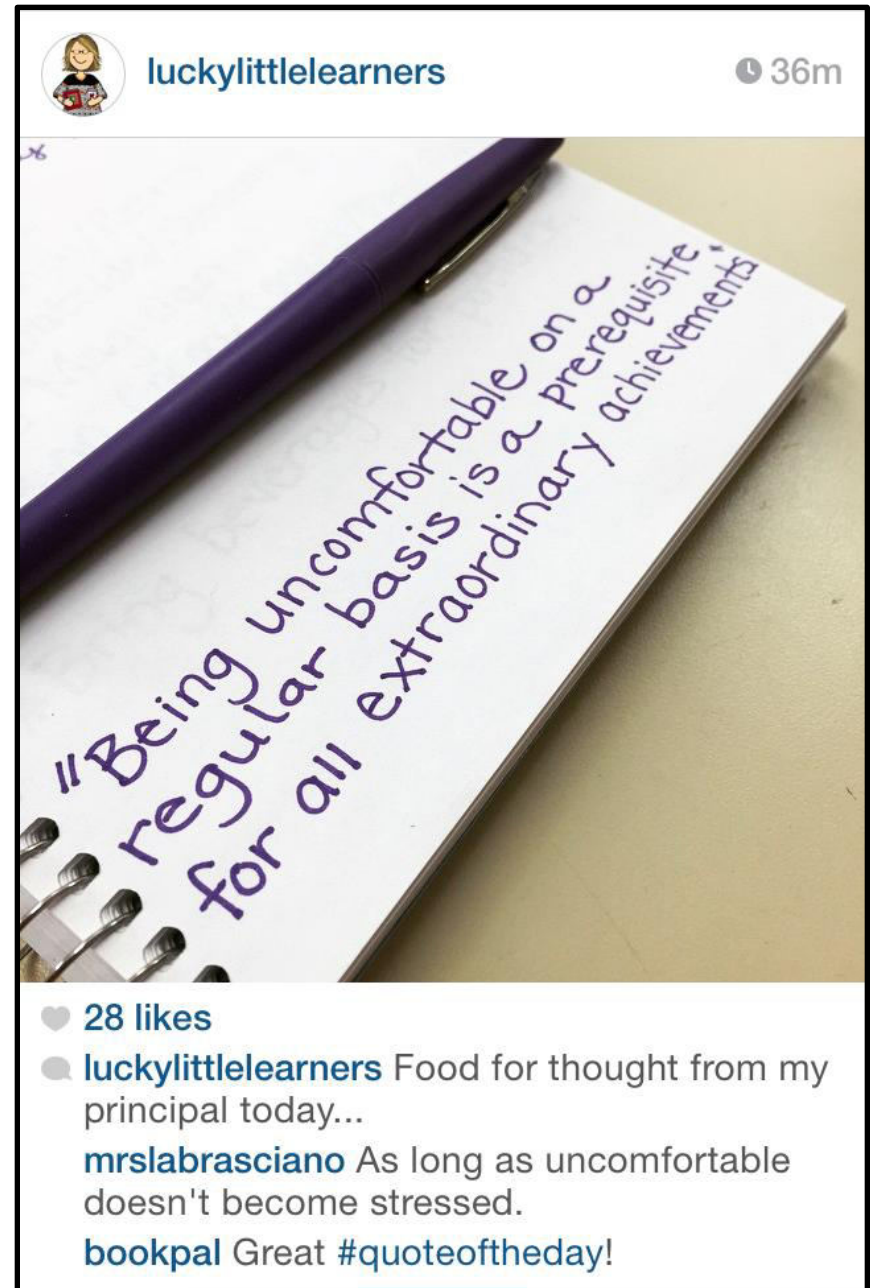 luckylittlelearners 36m
"Being uncomfortable on a
regular basis is a prerequisite
for all extraordinary achievements"
28 likes
luckylittlelearners Food for thought from my
principal today...
mrslabrasciano As long as uncomfortable
doesn't become stressed.
bookpal Great #quoteoftheday!